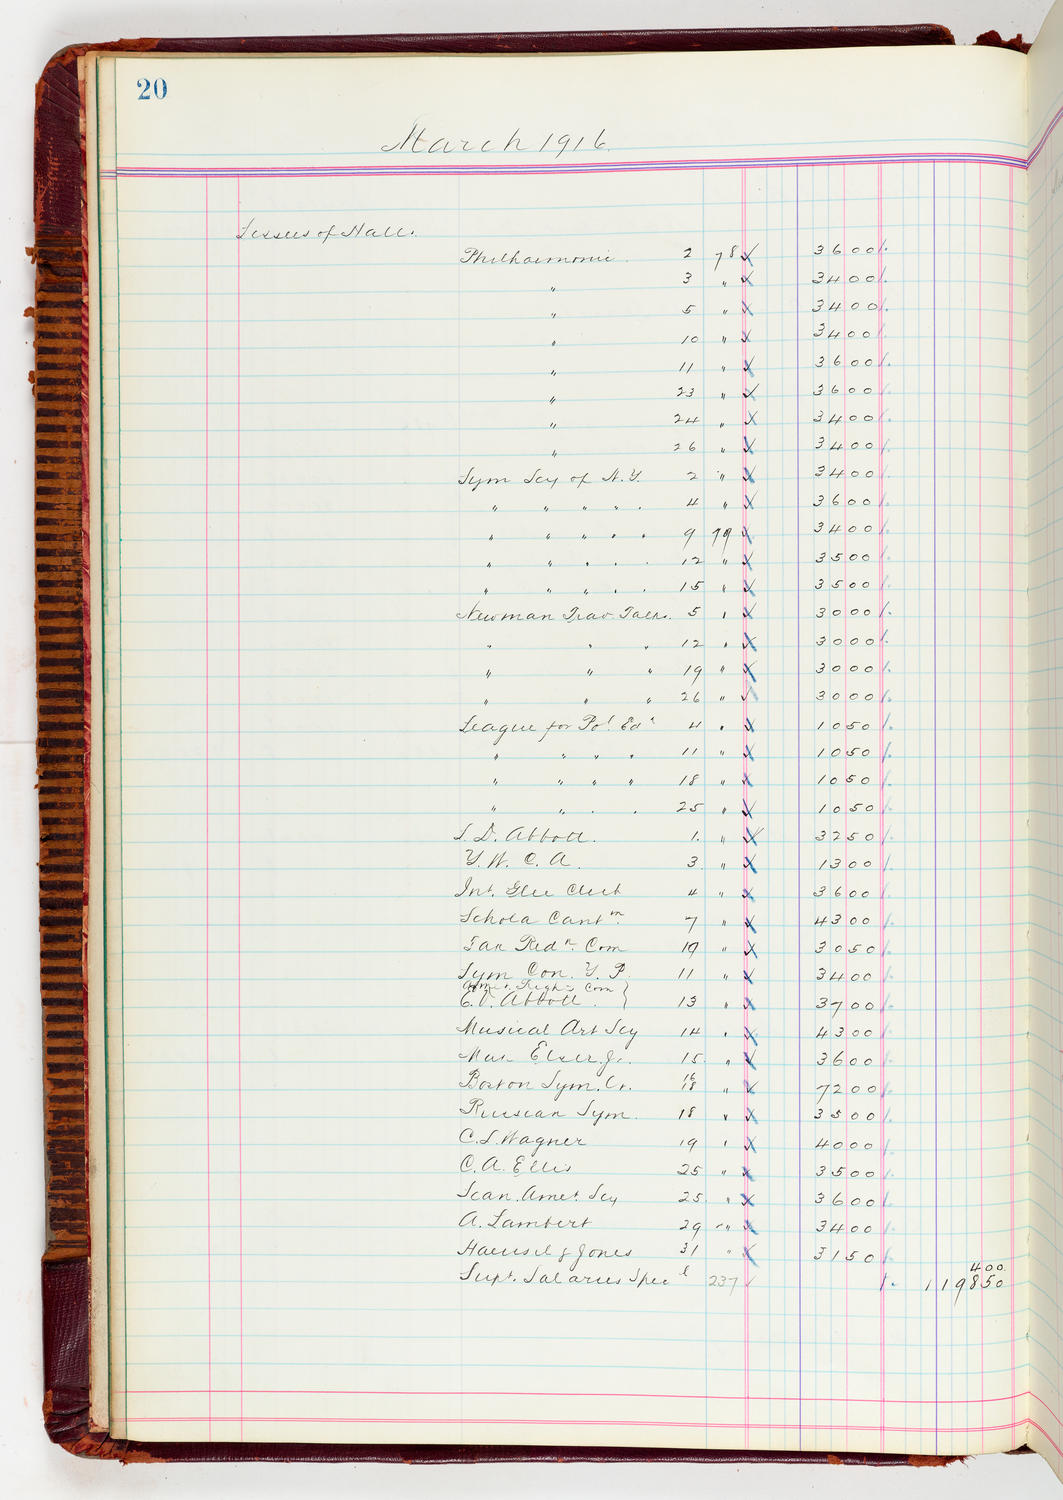 20
March 1916.
Lessees of Hall.
Philharmonic. 2 78 3600
" 3 " 3400
" 5 " 3400
" 10 " 3400
" 11 " 3600
" 23 " 3600
" 24 " 3400
" 26 " 3400
Sym Scy of N.Y. 2 " 3400
" " " " . 4 " 3600
" " " " " 9 79 3400
" " " " . 12 " 3500
" " " . . 15 " 3500
Newman Trav Talks. 5 " 3000
" " " 12 " 3000
" " " 19 " 3000
" " " 26 " 3000
League for Pol. Edn 4 " 1050
" " " " 11 " 1050
" " " " 18 " 1050
" " . . 25 " 1050
L. D. Abbott. 1. " 3250
Y. W. C. A. 3. " 1300
Int. Glee Club 4 " 3600
Schola Cantm. 7 " 4300
Tax Redn. Com 19 " 3050
Sym Con. Y. P. 11 " 3400
Amer. Rights Com
L. D. Abbott. } 13 " 3700
Musical Art Scy 14 " 4300
Max Elser. Jr. 15. " 3600
Boston Sym. Co. 16 18 " 7200
Russian Sym. 18 " 3500
C. L. Wagner 19 " 4000
C. A. Ellis 25 " 3500
Scan. Amer. Scy 25. " 3600
A. Lambert 29 " 3400
Haensel & Jones 31 " 3150
400.
Supt. Salaries Specl 237 119850